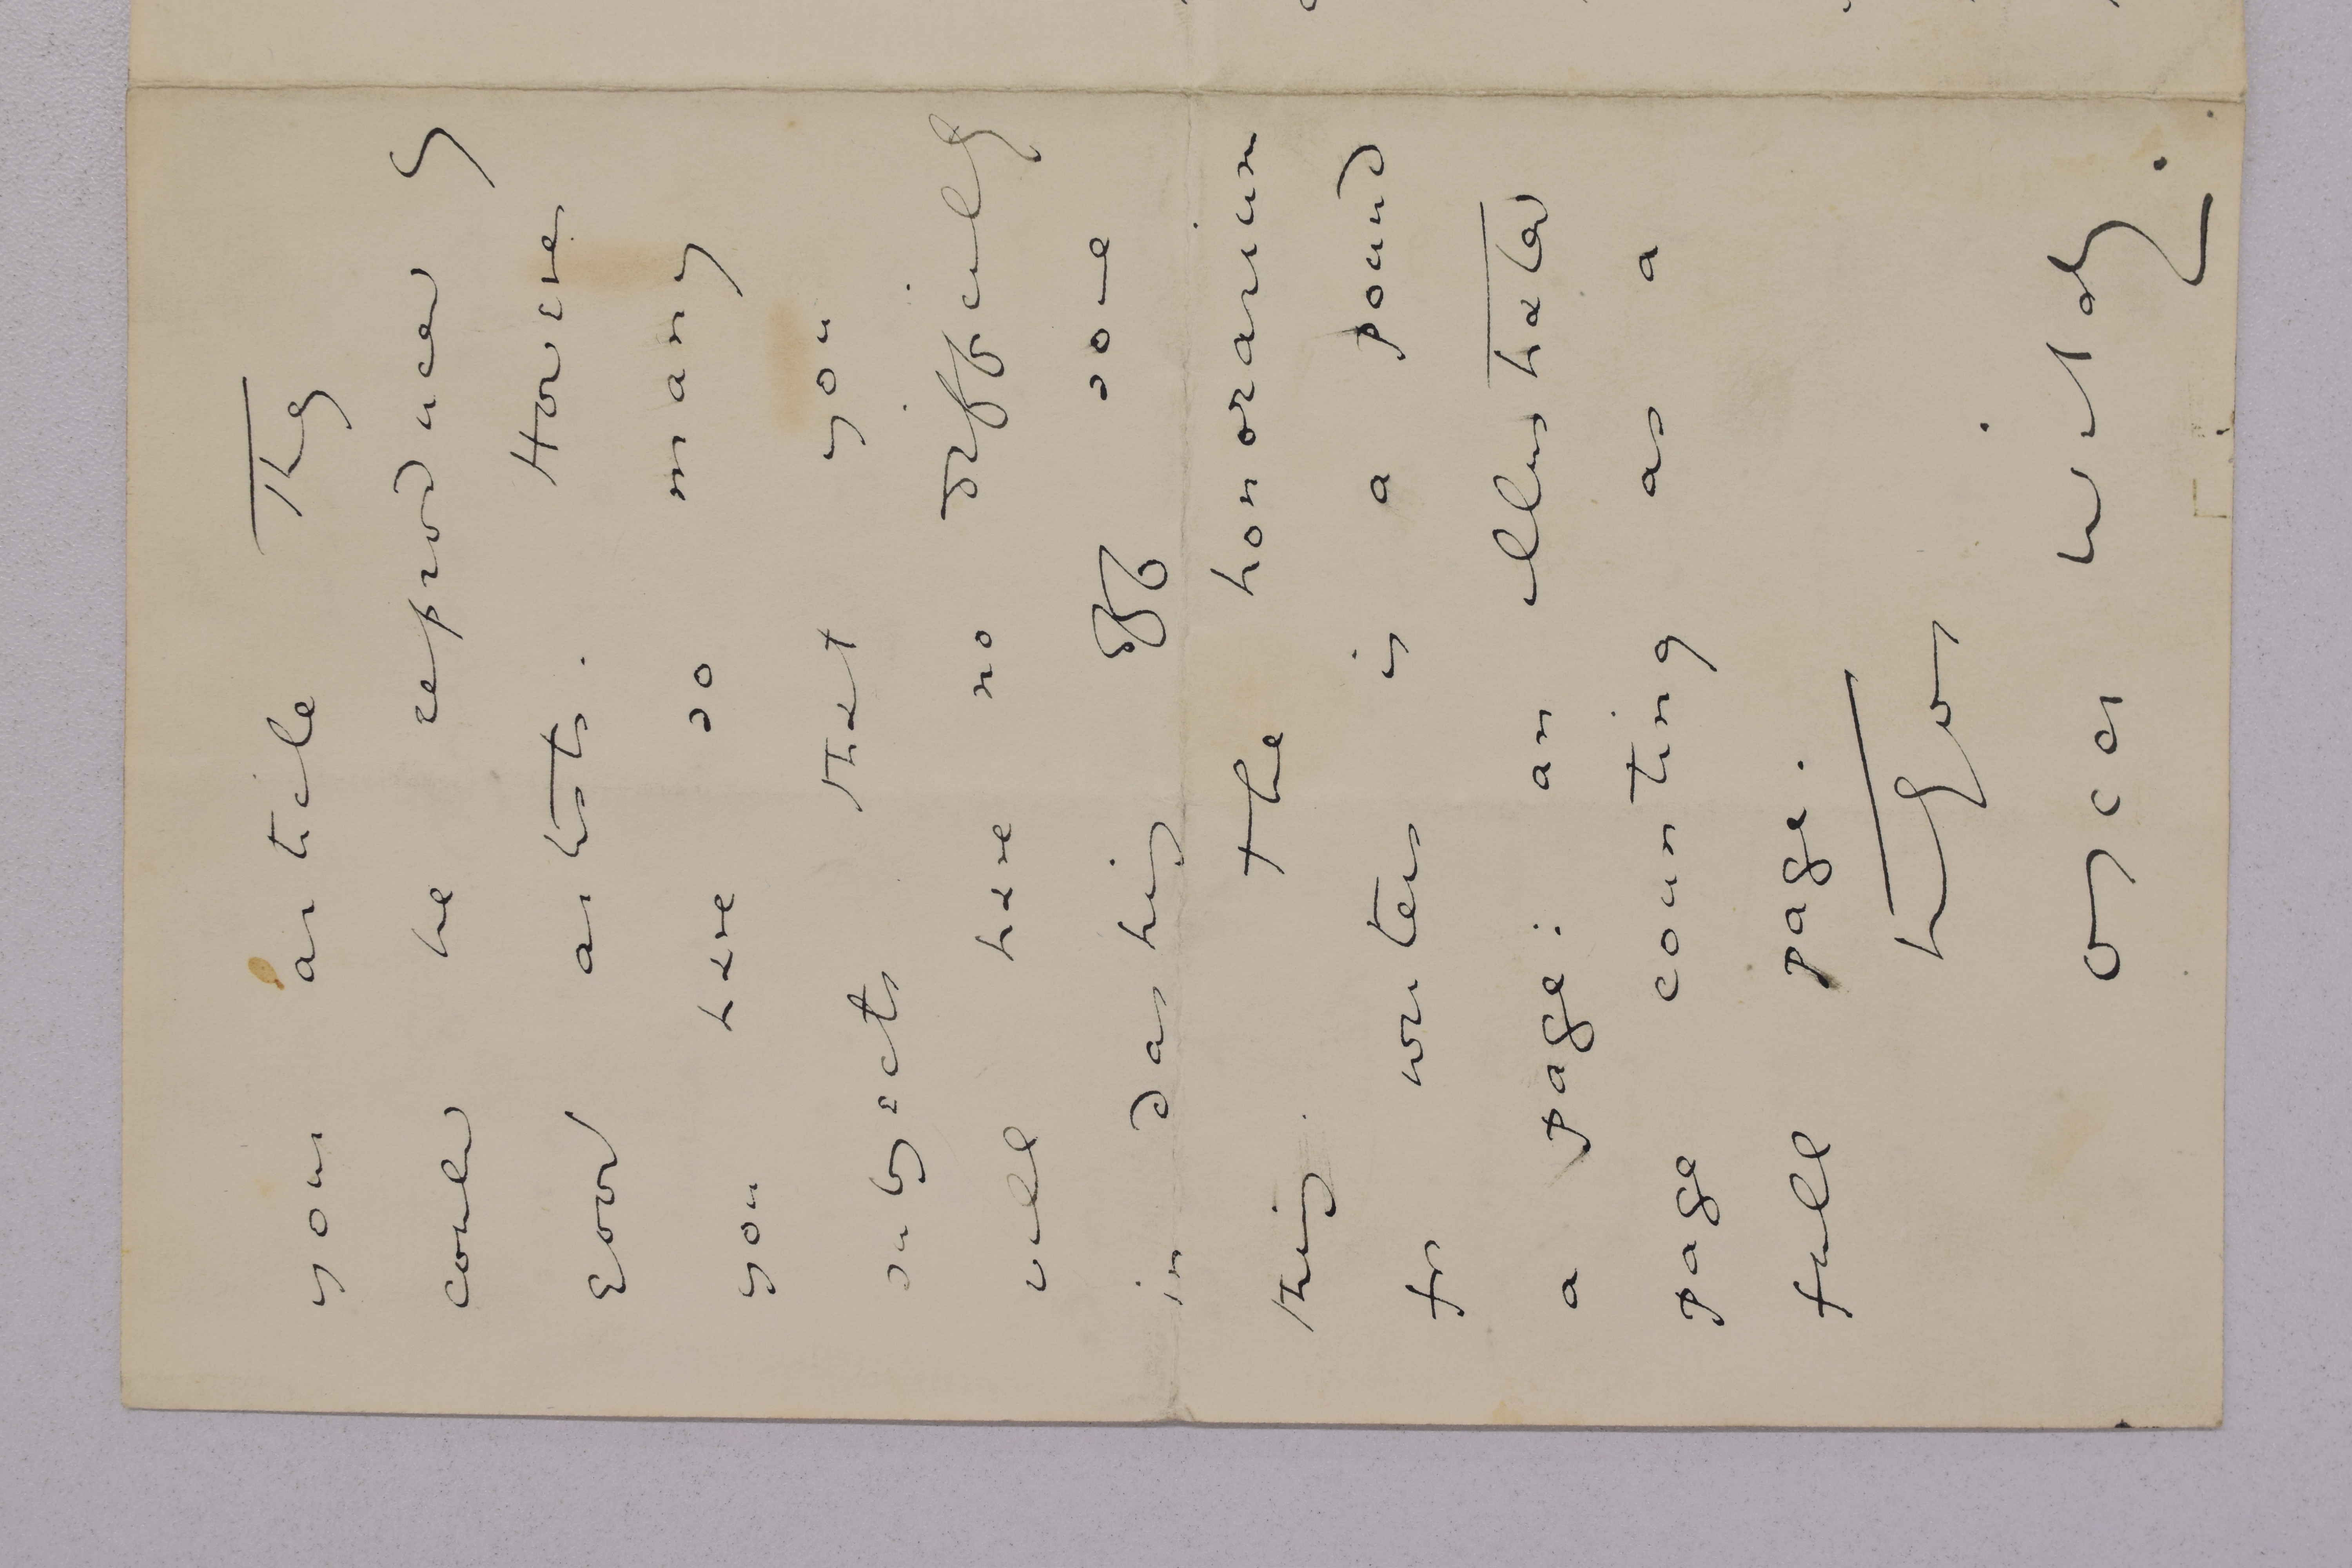 your article They
could be reproduced by
good artists. However
you have so many
subjects that you
will have no difficulty
in dashing off some
thing. the honorarium
for writers is a pound
a page: an illustrated
page counting as a
full page.
truly yours
Oscar Wilde.